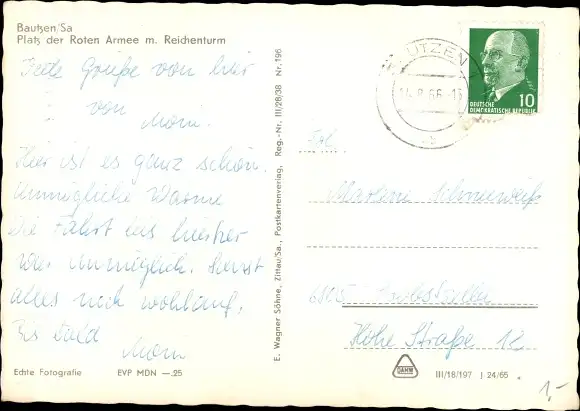 Bautzen/Sa
Platz der Roten Armee m. Reichenturm
Grüße von hier
von Moni.
Hier ist es ganz schön.
Unmögliche Wärme
die Fahrt bis hierher
war unmöglich. Sonst
alles noch wohlauf.
Bis bald
Moni
Echte Fotografie EVP MDN —.25
E. Wagner Söhne, Zittau/Sa., Postkartenverlag, Reg.-Nr. III/28/38 Nr. 196
BAUTZEN
66
10
DEUTSCHE
DEMOKRATISCHE REPUBLIK
Frl.
Marlene
Hohe Straße 12
DAHM
III/18/197 J 24/65
1,-